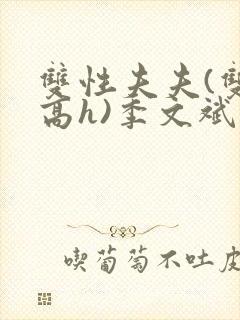 雙性夫夫(雙
高h)季文斌
喫葡萄不吐皮